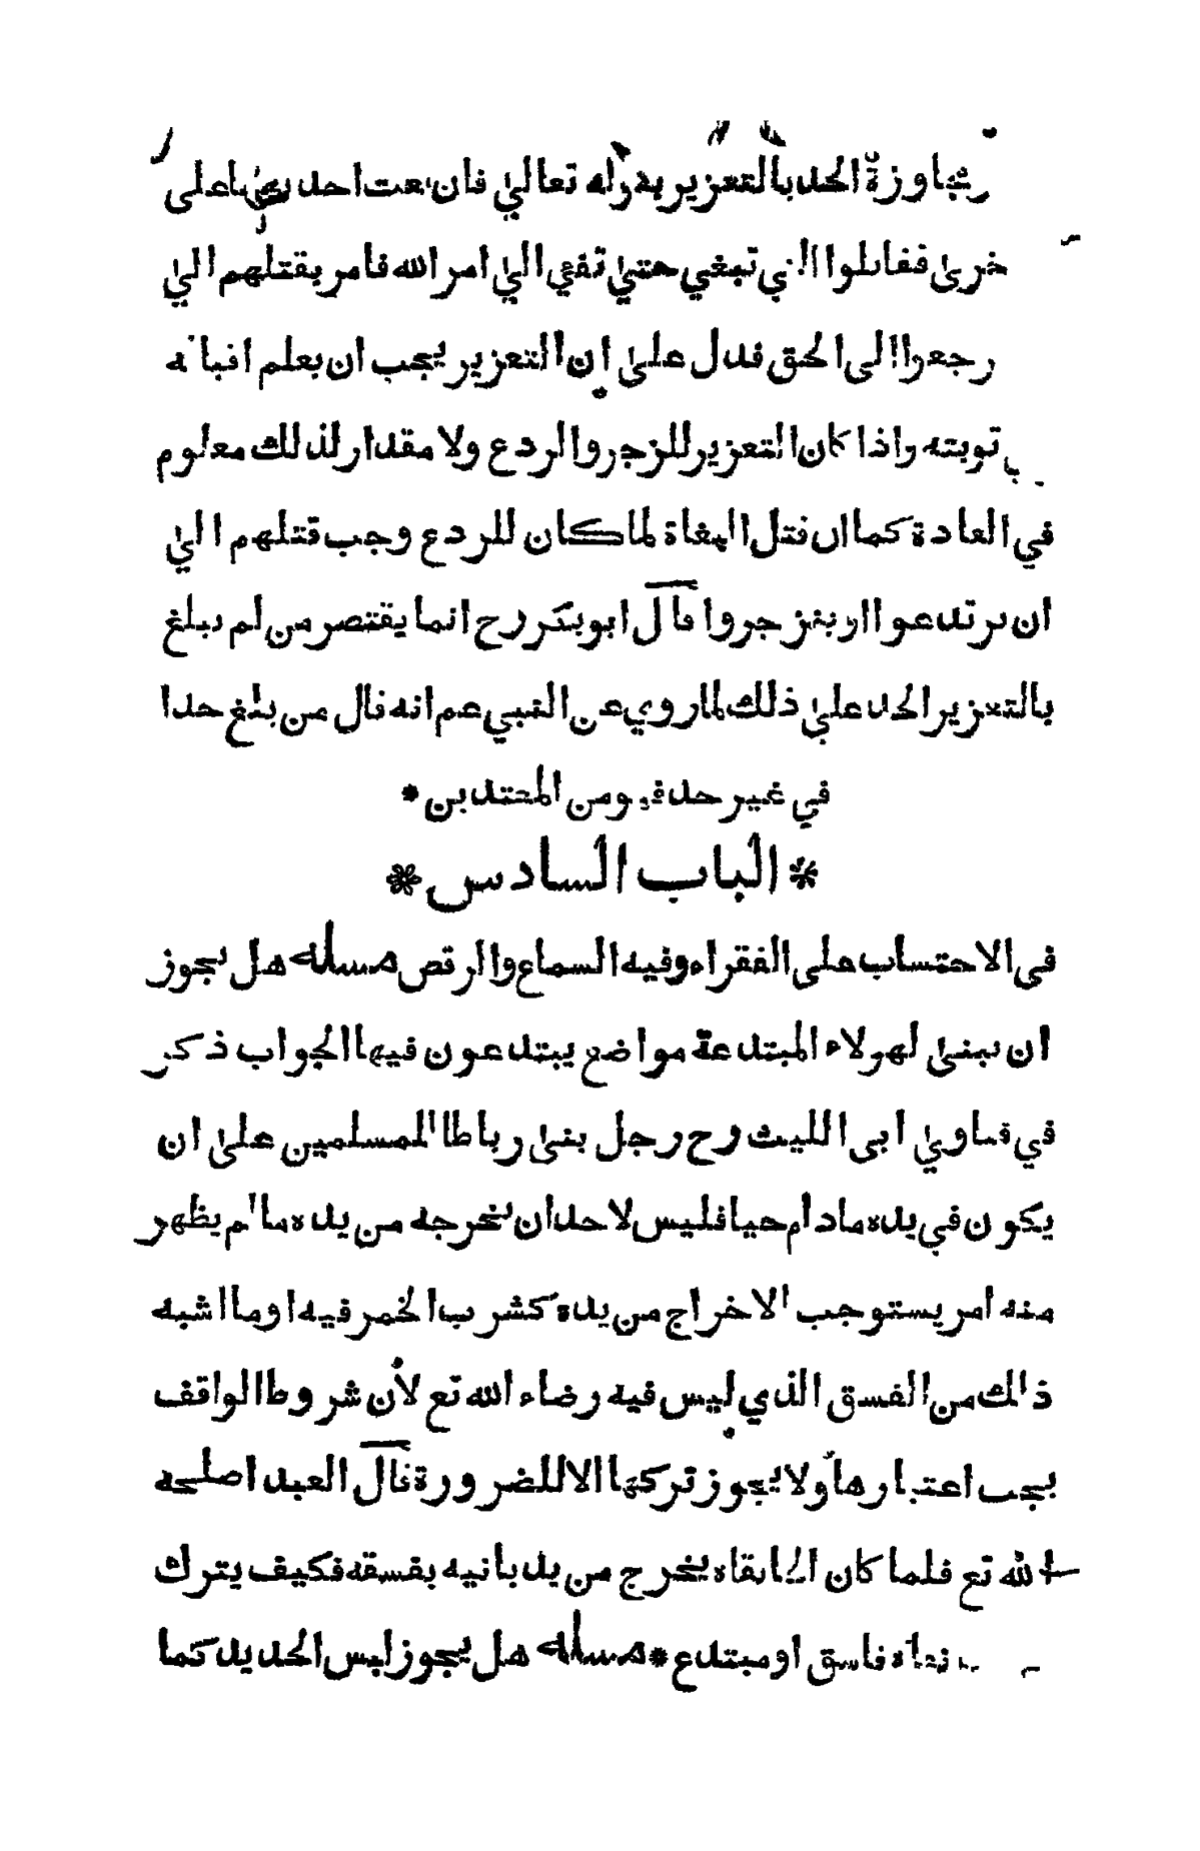 مجاوزة الحد بالتعزير بقوله تعالى فان بغت احديهما على
خرى فقاتلوا التي تبغي حتى تفئ الى امر الله فامر بقتلهم الى
رجعوا الى الحق فدل على ان التعزير يجب ان يعلم
توبته واذا كان التعزير للزجر والردع ولا مقدار لذلك معلوم
في العادة كما ان قتل البغاة لما كان للردع وجب قتلهم الى
ان يرتدعوا او ينزجروا قال ابو بكر رح انما يقتصر من لم يبلغ
بالتعزير الحد على ذلك لما روي عن النبي عم انه قال من بلغ حدا
في غير حد فهو من المعتدين *
* الباب السادس *
فى الاحتساب على الفقراء وفيه السماع والرقص مسئله هل يجوز
ان يبنى لهولاء المبتدعة مواضع يبتدعون فيها الجواب ذكر
في فتاوي ابى الليث رح رجل بنى رباطا للمسلمين على ان
يكون في يده مادام حيا فليس لاحد ان يخرجه من يده ما لم يظهر
منه امر يستوجب الاخراج من يده كشرب الخمر فيه او ما اشبه
ذلك من الفسق الذي ليس فيه رضاء الله تع لأن شروط الواقف
يجب اعتبارها ولا يجوز تركها الا للضرورة قال العبد اصلحه
الله تع فلما كان الخانقاه يخرج من يد بانيه بفسقه فكيف يترك
فاسق او مبتدع * مسئله هل يجوز لبس الحديد كما